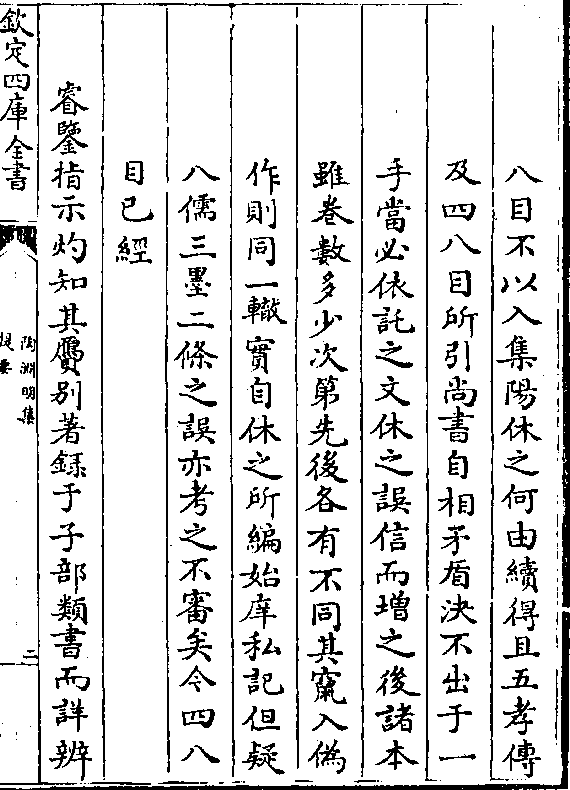 八目不以入集陽休之何由續得且五孝傳
及四八目所引尚書自相矛盾決不出于一
手當必依託之文休之誤信而增之後諸本
雖卷數多少次第先後各有不同其竄入偽
作則同一轍實自休之所編始庠私記但疑
八儒三墨二條之誤亦考之不審矣今四八
目已經
睿鑒指示灼知其贗別著錄于子部類書而詳辨
欽定四庫全書
陶淵明集
提要
二